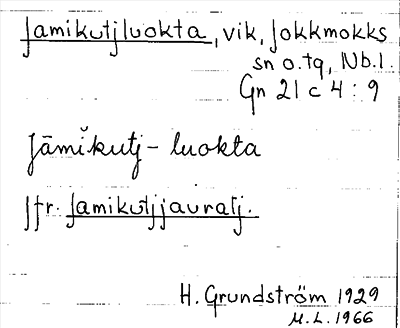 Jamikutjluokta, vik, Jokkmokks
sn o. tg, Nb. l.
Gn 21 c 4 : 9
Jāmĭkutj - luokta
Jfr. Jamikutjjauratj.
H. Grundström 1929
M. L. 1966